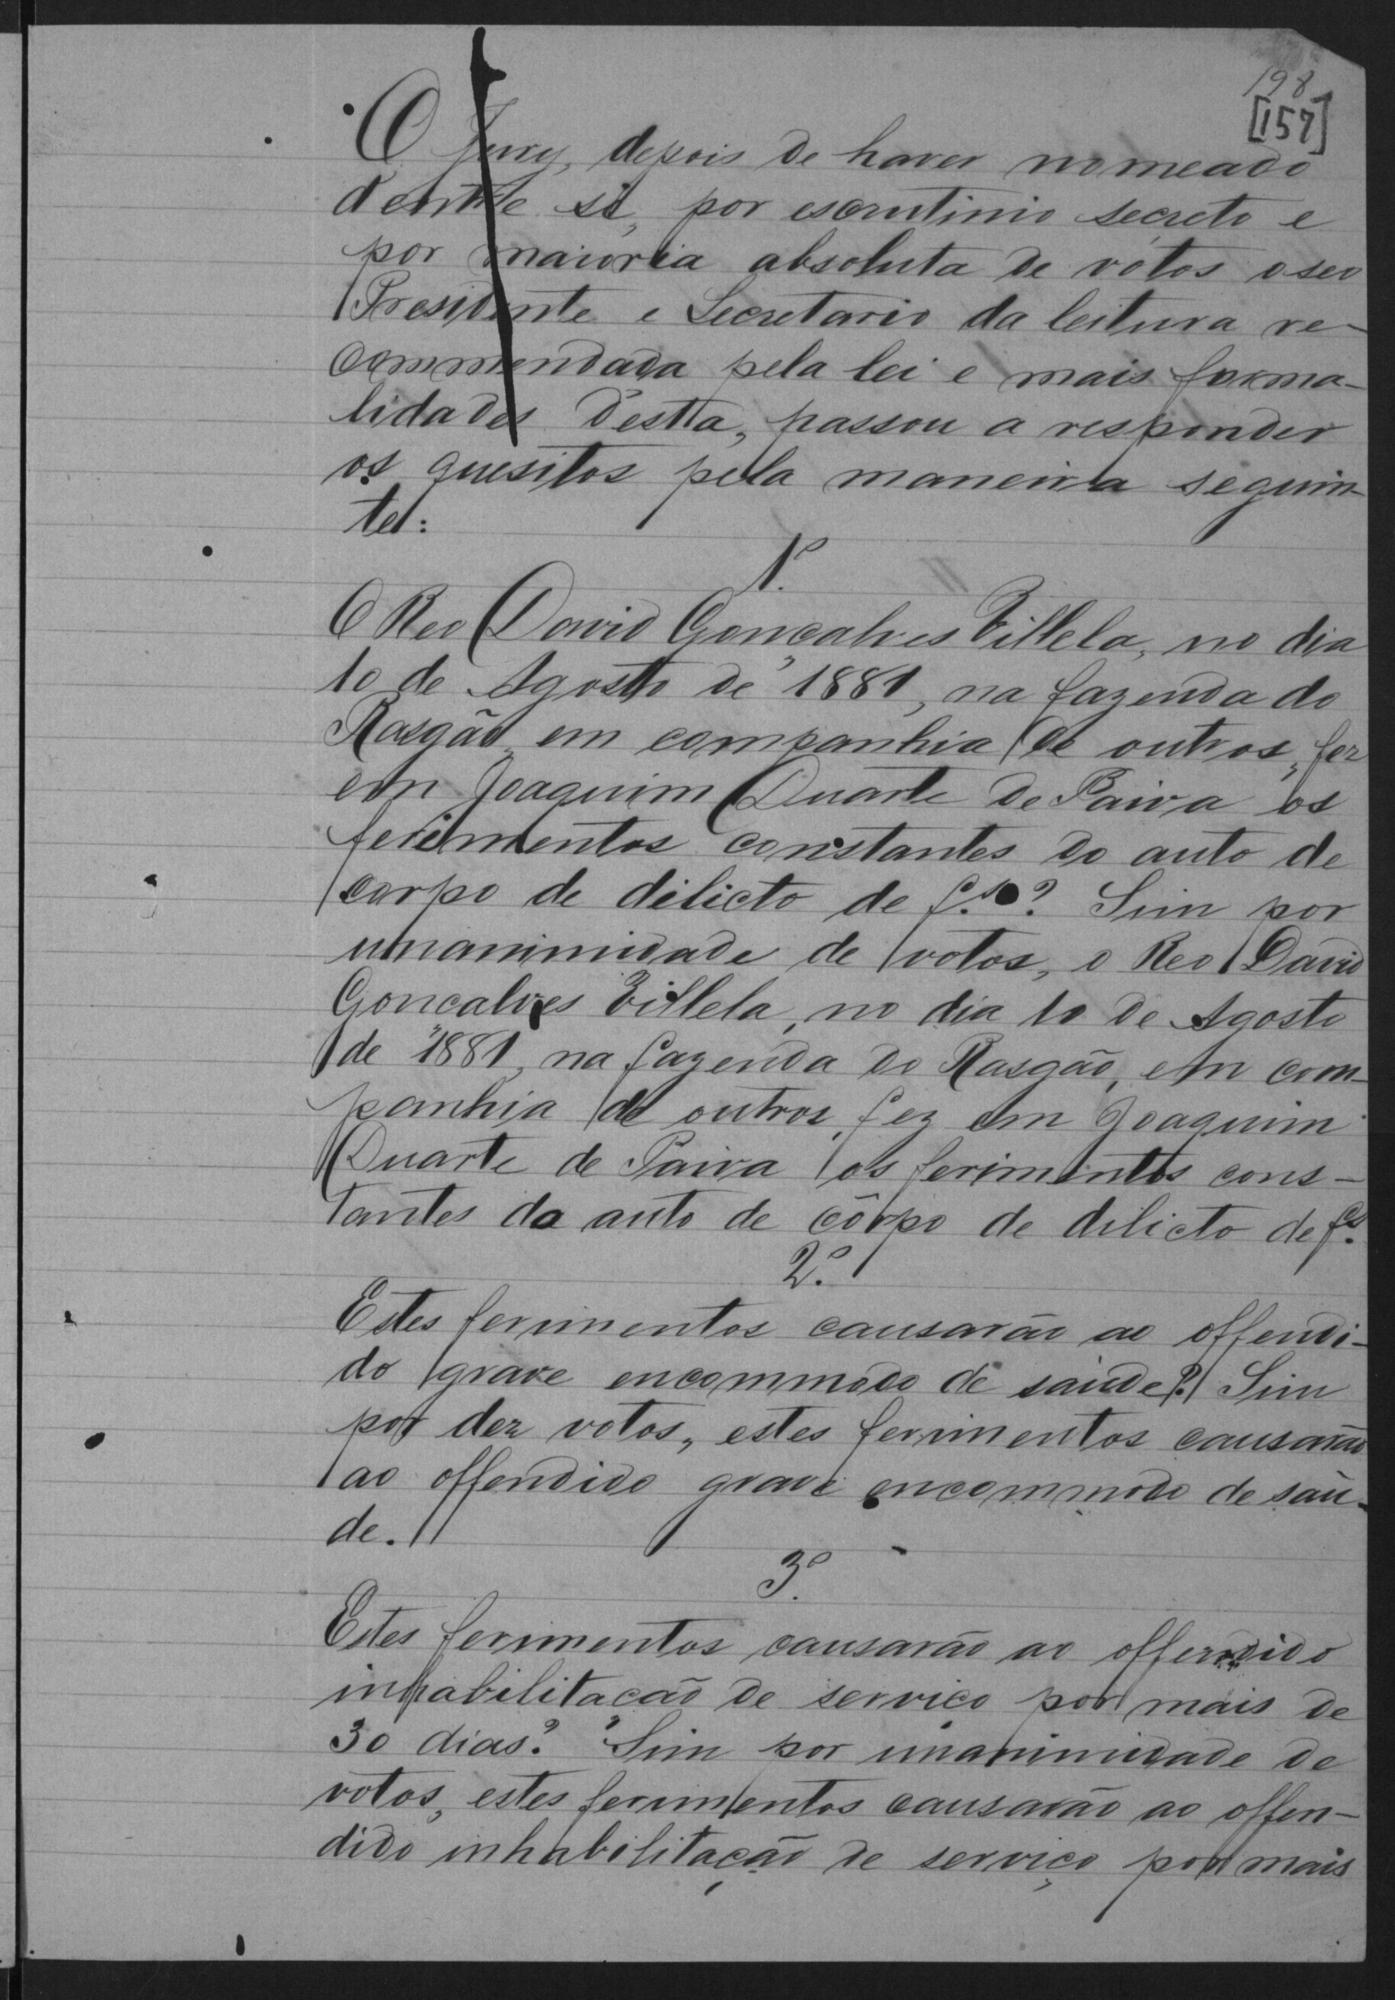 198
[157]
O Jury, depois de haver nomeado
dentre si, por escrutinio secreto e
por maioria absoluta de vótos o seo
Presidente e Secretario da leitura re-
commendada pela lei e mais forma-
lidades desta, passou a responder
os quesitos pela maneira seguin-
te:
1º
O Reo David Gonçalves Villela, no dia
10 de Agosto de 1881, na fazenda do
Rasgão em companhia de outros, fez
em Joaquim Duarte de Paiva os
ferimentos constantes do auto de
corpo de delicto de fs. ? Sim por
unanimidade de votos, o Reo David
Gonçalves Villela, no dia 10 de Agosto
de 1881, na fazenda do Rasgão, em com-
panhia de outros, fez em Joaquim
Duarte de Paiva os ferimentos cons-
tantes do auto de côrpo de delicto de fs.
2º
Estes ferimentos causarão ao offendi-
do grave encommodo de saúde? Sim
por dez votos, estes ferimentos causarão
ao offendido grave encommodo de saú-
de.
3º
Estes ferimentos causarão ao offendido
inhabilitação de serviço por mais de
30 dias? Sim por unanimidade de
votos, estes ferimentos causarão ao offen-
dido inhabilitação de serviço por mais